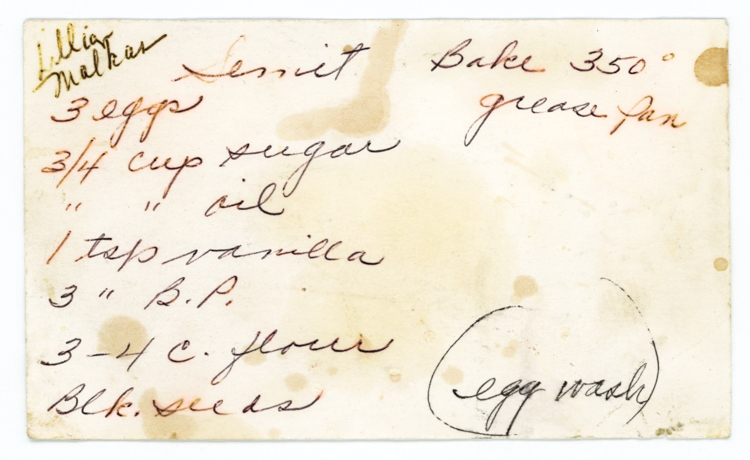 Lillian
Malkas
Semit Bake 350°
grease pan
3 eggs
3/4 cup sugar
" " oil
1 tsp vanilla
3 " B.P.
3-4 c. flour
Blk. seeds
(egg wash)